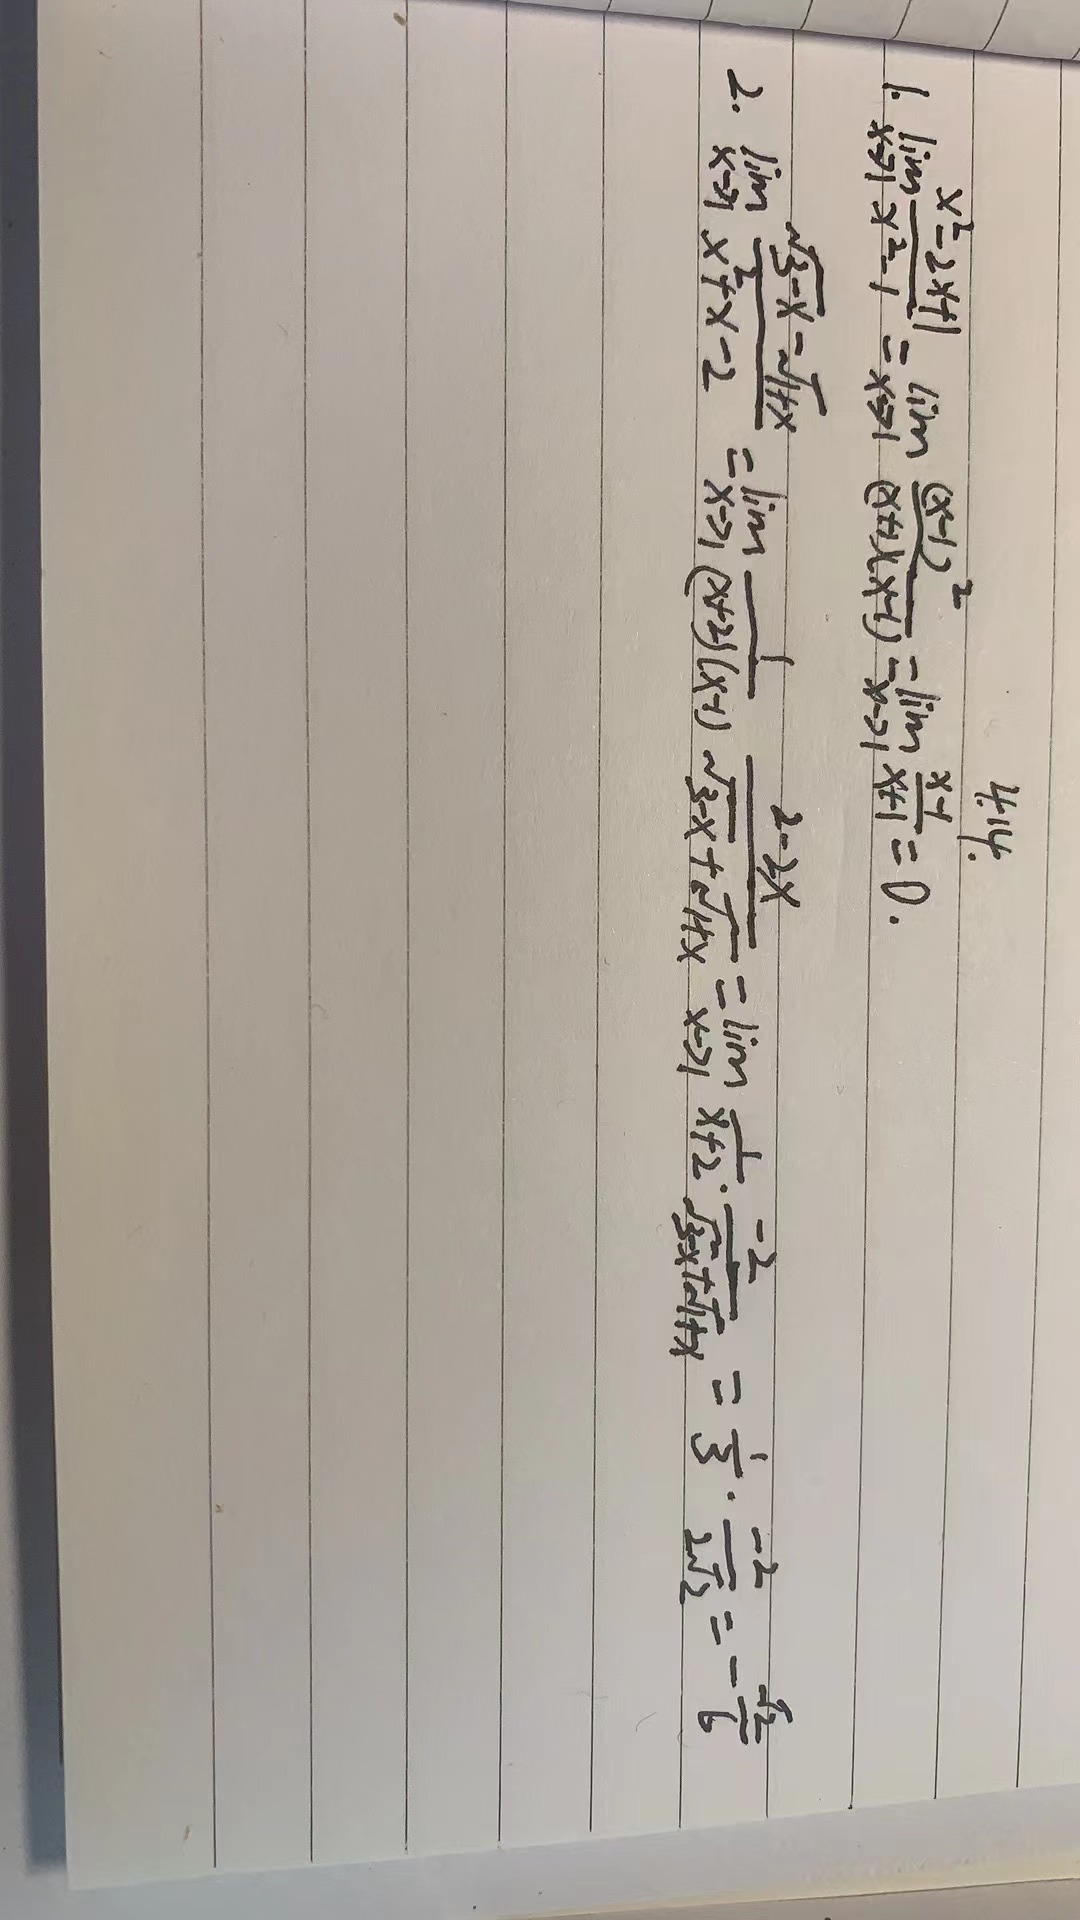 4.14.
1. lim_{x→1} (x²-2x+1)/(x²-1) = lim_{x→1} (x-1)²/((x+1)(x-1)) = lim_{x→1} (x-1)/(x+1) = 0.
2. lim_{x→1} (√(3-x) - √(1+x))/(x²+x-2) = lim_{x→1} 1/((x+2)(x-1)) (2-2x)/(√(3-x)+√(1+x)) = lim_{x→1} 1/(x+2) · (-2)/(√(3-x)+√(1+x)) = 1/3 · (-2)/(2√2) = -√2/6